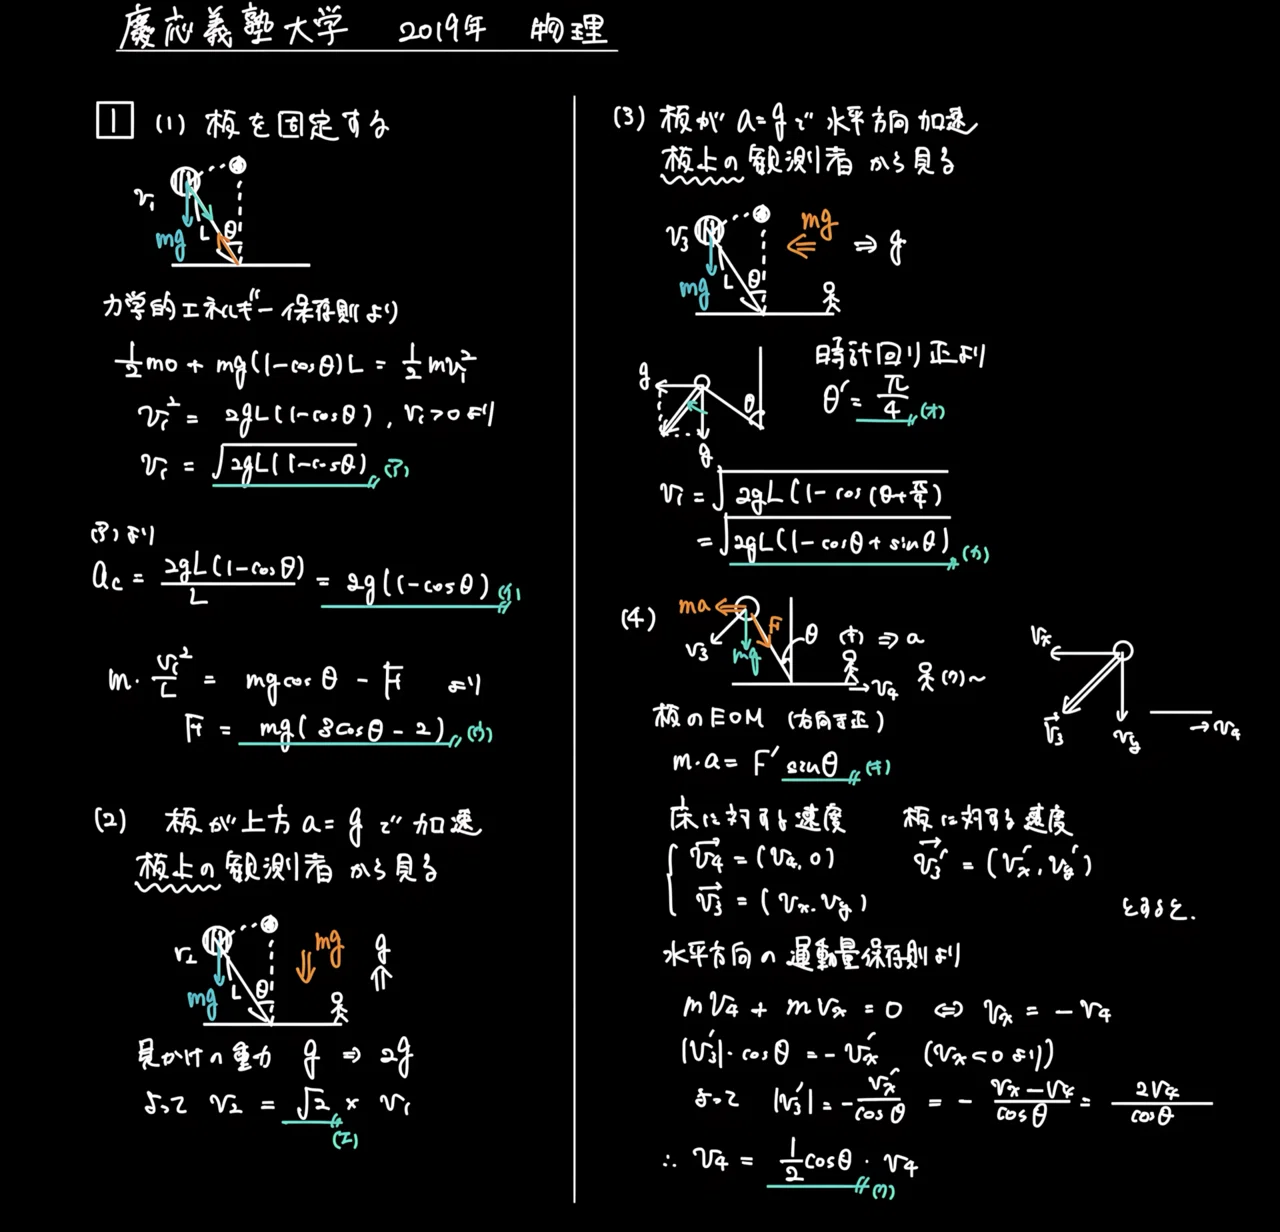 慶応義塾大学 2019年 物理
1 (1) 板を固定する
v₁
mg
L
θ
力学的エネルギー保存則より
1/2 m0 + mg(1-cosθ)L = 1/2 mv₁²
v₁² = 2gL(1-cosθ), v₁>0より
v₁ = √2gL(1-cosθ) (ア)
(ア)より
ac = 2gL(1-cosθ)/L = 2g(1-cosθ) (イ)
m・v₁²/L = mgcosθ - F より
F = mg(3cosθ-2) (ウ)
(2) 板が上方 a=g で加速
板上の観測者から見る
v₂
mg
L
θ
mg
g
見かけの重力 g ⇒ 2g
よって v₂ = √2 × v₁
(エ)
(3) 板が a=g で水平方向加速
板上の観測者から見る
v₃
mg
L
θ
mg
⇒ g
g
θ
g
時計回り正より
θ' = π/4 (オ)
v₁ = √2gL(1-cos(θ+π/4)
= √2gL(1-cosθ+sinθ) (カ)
(4)
ma
F
θ
v₃
mg
(キ) ⇒ a
→v₄
(ク)~
vx
v₃
vy
→v₄
板のEOM (方向→正)
m・a = F' sinθ (キ)
床に対する速度 板に対する速度
v₄ = (v₄, 0) v₃' = (vx', vy')
v₃ = (vx, vy) とすると、
水平方向の運動量保存則より
mv₄ + mvx = 0 ⇔ vx = -v₄
|v₃'|・cosθ = -vx' (vx<0より)
よって |v₃'| = -vx'/cosθ = -(vx-v₄)/cosθ = 2v₄/cosθ
∴ v₄ = 1/2 cosθ・v₄
(ク)